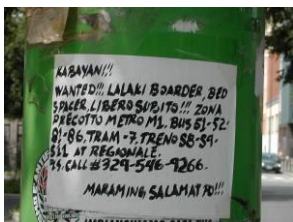 KABAYAN!!!
WANTED!!! LALAKI BOARDER, BED
SPACER, LIBERO SUBITO!!! ZONA
PRECOTTO METRO M1, BUS 51-52-
81-86, TRAM-7, TRENO S8-S9-
S11 AT REGIONALE.
CALL #329-546-9266.
MARAMING SALAMAT PO!!!